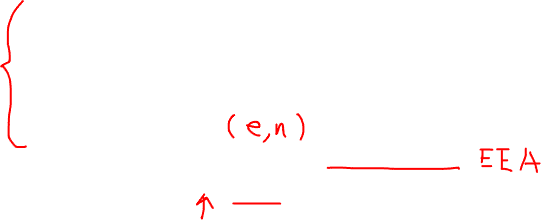 (e,n)
EEA